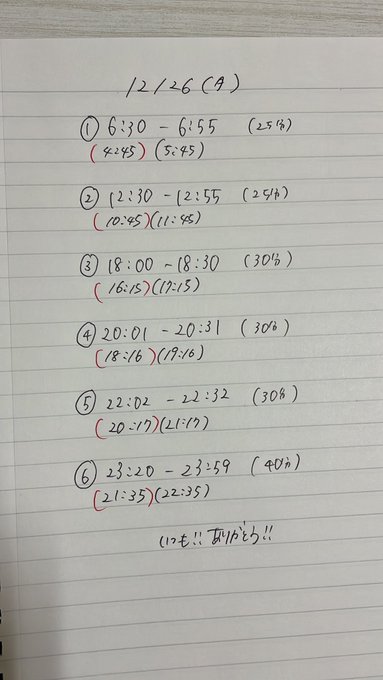 12/26(A)
① 6:30 - 6:55 (25分)
(4:45) (5:45)
② 12:30 - 12:55 (25分)
(10:45)(11:45)
③ 18:00 - 18:30 (30分)
(16:15)(17:15)
④ 20:01 - 20:31 (30分)
(18:16)(19:16)
⑤ 22:02 - 22:32 (30分)
(20:17)(21:17)
⑥ 23:20 - 23:59 (40分)
(21:35)(22:35)
いつも!! ありがとう!!